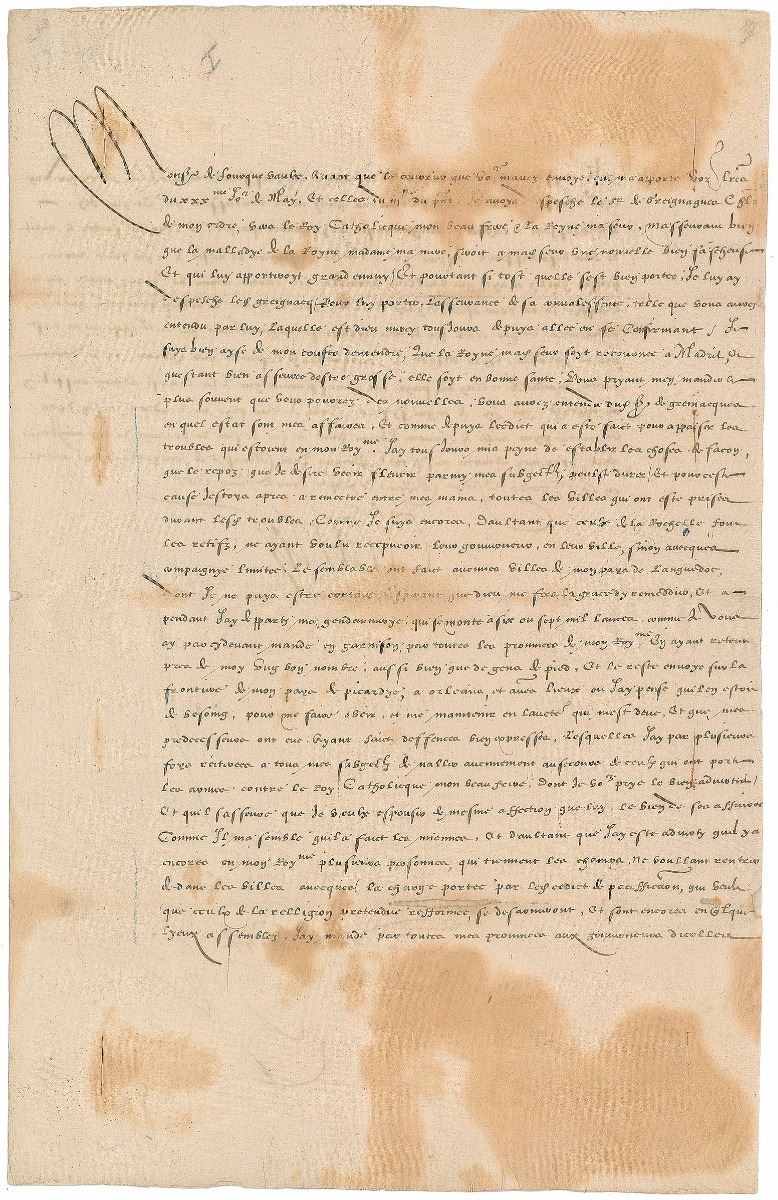 Monsr de Forquevaulx, Avant que le courrier que vous mavez envoye, eu, ma apporte voz lres
du xxxme Jor de May, Et celles du du pnt, Je avoys despesche le sr de
de mon ordre, vers le Roy Catholicque mon beau frere, & la Royne ma seur, Massevrant bien
que la malladye de la Royne madame ma mere, seroit a mad. seur une nouvelle bien fascheuse
Et qui luy apporteroyt grand ennuy, Et pourtant si tost quelle sest bien portee, Je luy ay
despesche led. Greignacq, Pour luy porter, lasseurance de sa convalessence, telle que vous aurez
entendu par luy, Laquelle est dieu mercy tousjours depuys allee en se Confirmant, Je
suys bien ayse de mon couste dentendre, Que la Royne, mad. seur soyt retournee a Madrit, &
questant bien asseuree destre grosse, elle soyt en bonne sante, Vous pryant men mander le
plus souvent que vous pourrez des nouvelles, Vous aurez entendu dud. sr de Gremacques
en quel estat sont mes affaires, Et comme depuys leedict qui a este faict pour appaiser les
troubles qui estoient en mon Royme, Jay tousjours mis peyne de establir les choses de facon,
que le repoz que Je desire veoir fleurir parmy mes subgectz, peust durer, Et pour cest
cause Jestoys apres a remectre entre mes mains, toutes les villes qui ont este prises
durant lesd. troubles, Comme Je suys encores, Daultant que ceulx de la Rochelle font
les retifz, ne ayant voulu recepvoir leur gouverneur, en leur ville, sinon avecques
compaignye limitee, Le semblable ont faict aucunes villes de mon pays de Languedoc,
dont Je ne puys estre contant, Esperant que dieu me fera la grace dy remedier, Et ce
pendant Jay departy ma gendarmerye, qui se monte a six ou sept mil lances, comme Je vous
ay par cydevant mande en garnison, par toutes les provinces de mon Royme, En ayant retenu
pres de moy ung bon nombre, aussi bien que de gens de pied, Et le reste envoye sur la
frontiere de mon pays de picardye, a Orleans, et aues lieux ou Jay pense quil en estoit
de besoing, pour me faire obeir, et me maintenir en lauctorite qui mest deue, Et que mes
predecesseurs ont eue. Ayant faict deffences bien expresses, Lesquelles Jay par plusieurs
foys reiterees a tous mes subgectz de naller aucunement au secours de ceulx qui ont porte
les armes contre le Roy Catholicque mon beau frere, dont Je vous prye le bien advertir,
Et quil sasseure que Je veulx espouser de mesme affection que luy, le bien de ses affaires
Comme Il ma semble quil a faict les miennes, Et daultant que Jay este adverty quil y a
encores en mon Royme plusieurs personnes, qui tiennent les champs, Ne voullant rentrer
dedans les villes avecques la charge portee par led. edict de paciffication, qui veult
que ceulx de la relligion pretendue refformee, se desarmeront, Et sont encores en quelques
lyeux assemblez, Jay mande par toutes mes provinces aux gouverneurs dicelles